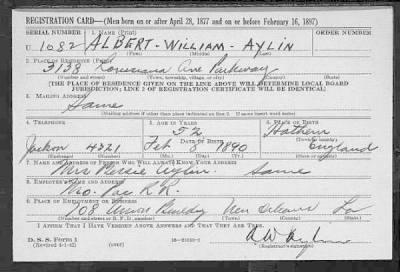 REGISTRATION CARD—(Men born on or after April 28, 1877 and on or before February 16, 1897)
SERIAL NUMBER 1. NAME (Print) ORDER NUMBER
U 1082 ALBERT - WILLIAM - AYLIN
2. PLACE OF RESIDENCE (Print)
3138 Louisiana Ave Parkway
(Number and street) (Town, township, village, or city) (County) (State)
[THE PLACE OF RESIDENCE GIVEN ON THE LINE ABOVE WILL DETERMINE LOCAL BOARD
JURISDICTION; LINE 2 OF REGISTRATION CERTIFICATE WILL BE IDENTICAL]
3. MAILING ADDRESS
Same
4. TELEPHONE 5. AGE IN YEARS 6. PLACE OF BIRTH
52
DATE OF BIRTH
Jackson 4321 Feb 8 1890 England
(Exchange) (Number) (Mo.) (Day) (Yr.) (State or country)
7. NAME AND ADDRESS OF PERSON WHO WILL ALWAYS KNOW YOUR ADDRESS
Mrs Aylin Same
8. EMPLOYER'S NAME AND ADDRESS
Mo. Pac. R.R.
9. PLACE OF EMPLOYMENT OR BUSINESS
708 Union Building New Orleans La
(Number and street or R. F. D. number) (Town) (County) (State)
I AFFIRM THAT I HAVE VERIFIED ABOVE ANSWERS AND THAT THEY ARE TRUE.
D. S. S. Form 1
(Revised 4-1-42) (over) A W Aylin
(Registrant's signature)